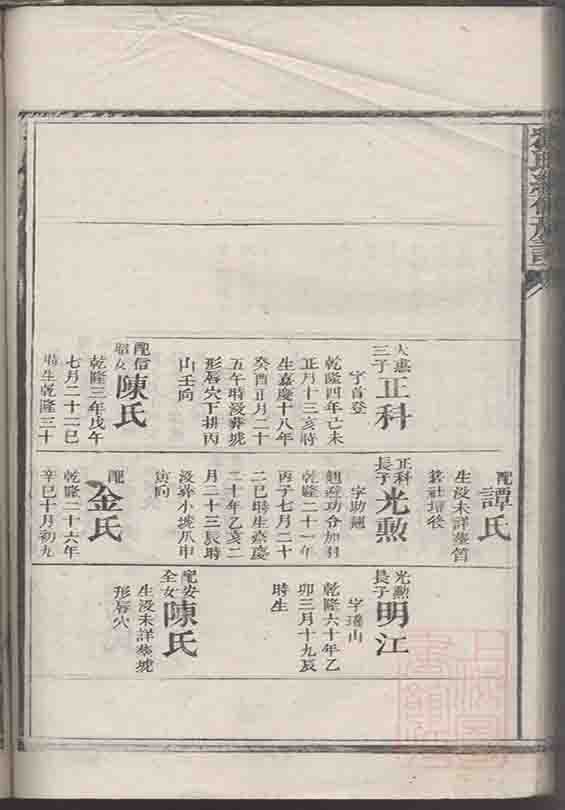 大
三子
正科
字首登
乾隆四年己未
正月十三亥時
生嘉慶十八年
癸酉正月二十
五午時沒葬塘
形唇穴下排丙
山壬向
配信
昭女
陳氏
乾隆三年戊午
七月二十二巳
時生乾隆三十
配
譚氏
生沒未詳葬筲
箕社壇後
正科
長子
光勲
字助
邀功令加
乾隆二十一年
丙子七月二十
二巳時生嘉慶
二十年乙亥二
月二十三辰時
沒葬小坡爪申
寅向
配
金氏
乾隆二十六年
辛巳十月初九
光勲
長子
明江
字瑤山
乾隆六十年乙
卯三月十九辰
時生
配安
全女
陳氏
生沒未詳葬塘
形唇穴